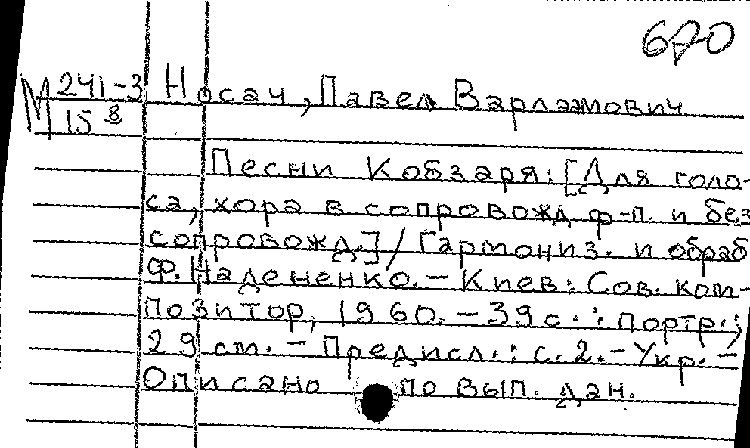 670
М 241-3
15 8
Носач, Павел Варламович
Песни Кобзаря: [Для голо-
са, хора в сопровожд. ф-п. и без
сопровожд.] / Гармониз. и обраб.
Ф. Надененко. – Киев: Сов. ком-
позитор, 1960. – 39 с.: портр.;
29 см. – Предисл.: с. 2. – Укр. –
Описано по вып. дан.